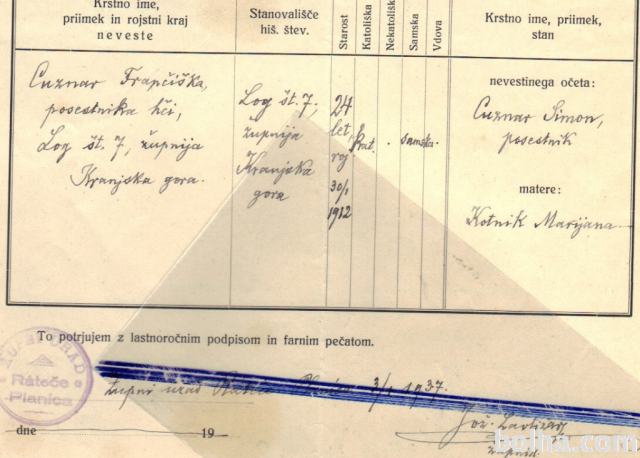 Krstno ime,
priimek in rojstni kraj
neveste
Stanovališče
hiš. štev.
Starost
Katoliška
Nekatoliška
Samska
Vdova
Krstno ime, priimek,
stan
Cuznar Frančiška,
posestnika hči,
Log št. 7, župnija
Kranjska gora.
Log št. 7,
župnija
Kranjska
gora
24
let,
roj.
30/1
1912
kat.
samska
nevestinega očeta:
Cuznar Simon,
posestnik
matere:
Kotnik Marijana
To potrjujem z lastnoročnim podpisom in farnim pečatom.
ŽUPNI URAD
Rateče
Planica
župni urad Rateče 1937.
dne 19
župnik
bolha.com